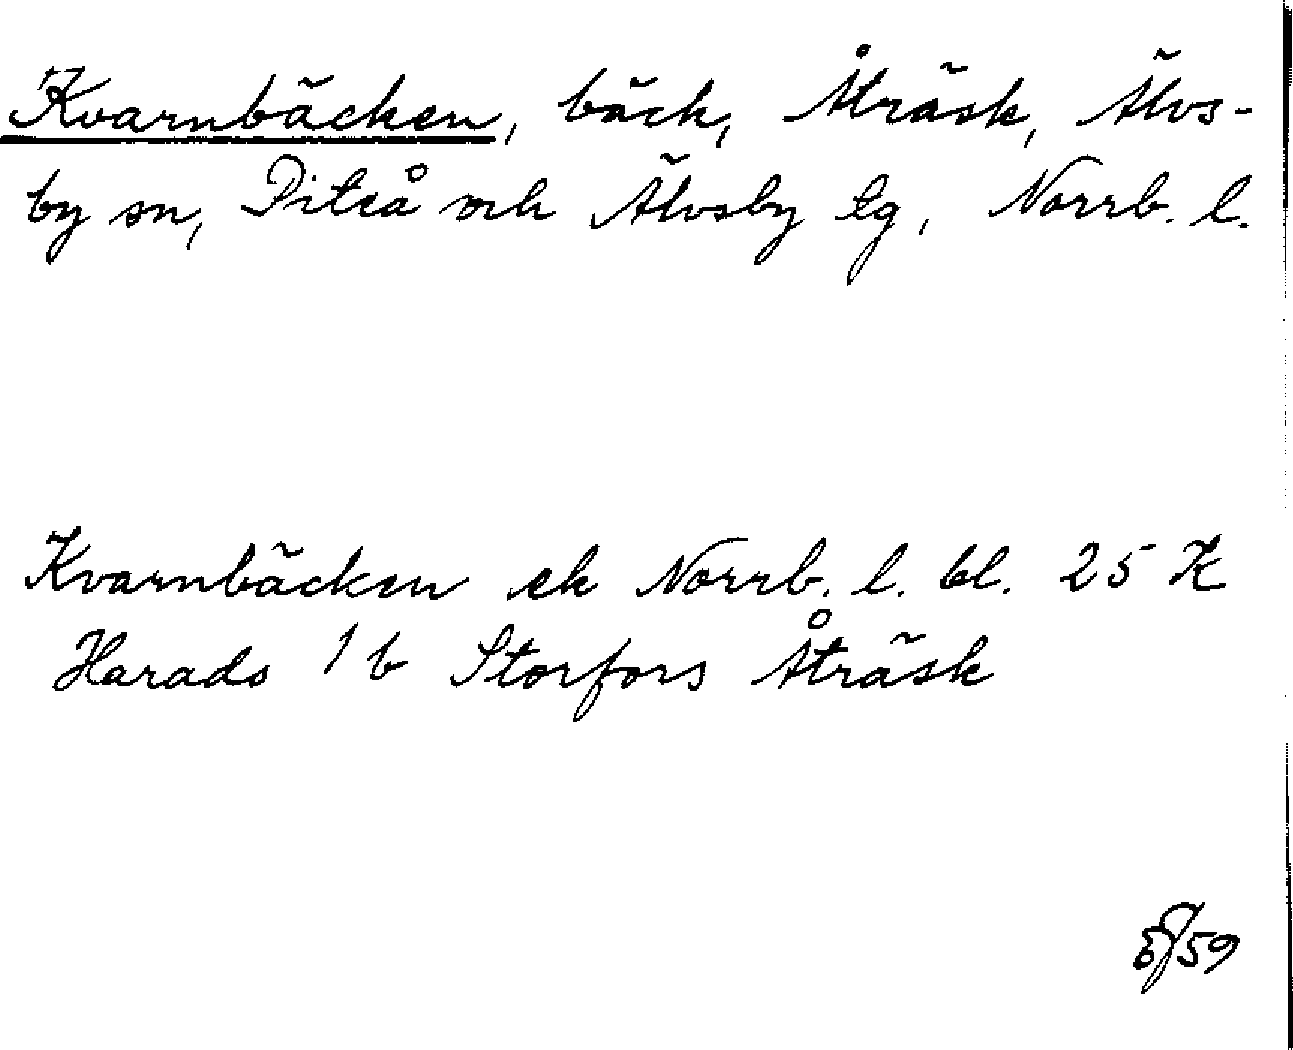 Kvarnbäcken, bäck, Åträsk, Älvs-
by sn, Piteå och Älvsby tg, Norrb. l.
Kvarnbäcken ek Norrb. l. bl. 25 K
Harads 1 b Storfors Åträsk
59